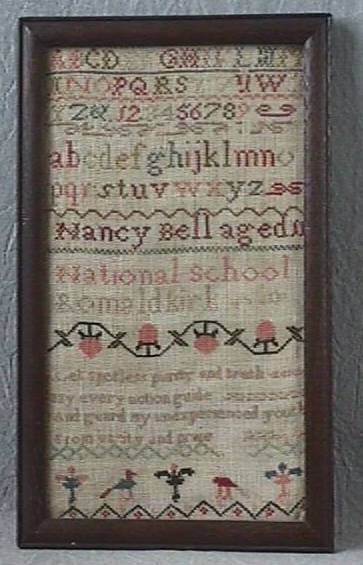 ABCD GHI
NOPQRS UW
YZ& 12 3456789
abcdefghijklmno
pqrstuvwxyz
Nancy Bell aged
National school
Romaldkirk
Let spotless purity and truth
my every action guide
And guard my unexperienced youth
From vanity and